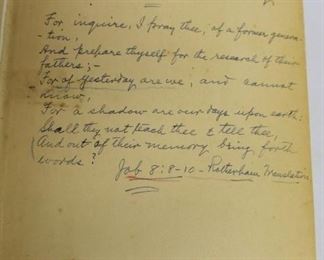 For inquire, I pray thee, of a former genera-
-tion,
And prepare thyself for the research of their
fathers;-
For of yesterday are we, and cannot
know,
For a shadow are our days upon earth:
Shall they not teach thee & tell thee,
And out of their memory bring forth
words?
Job 8:8-10 - Rotherham Translation